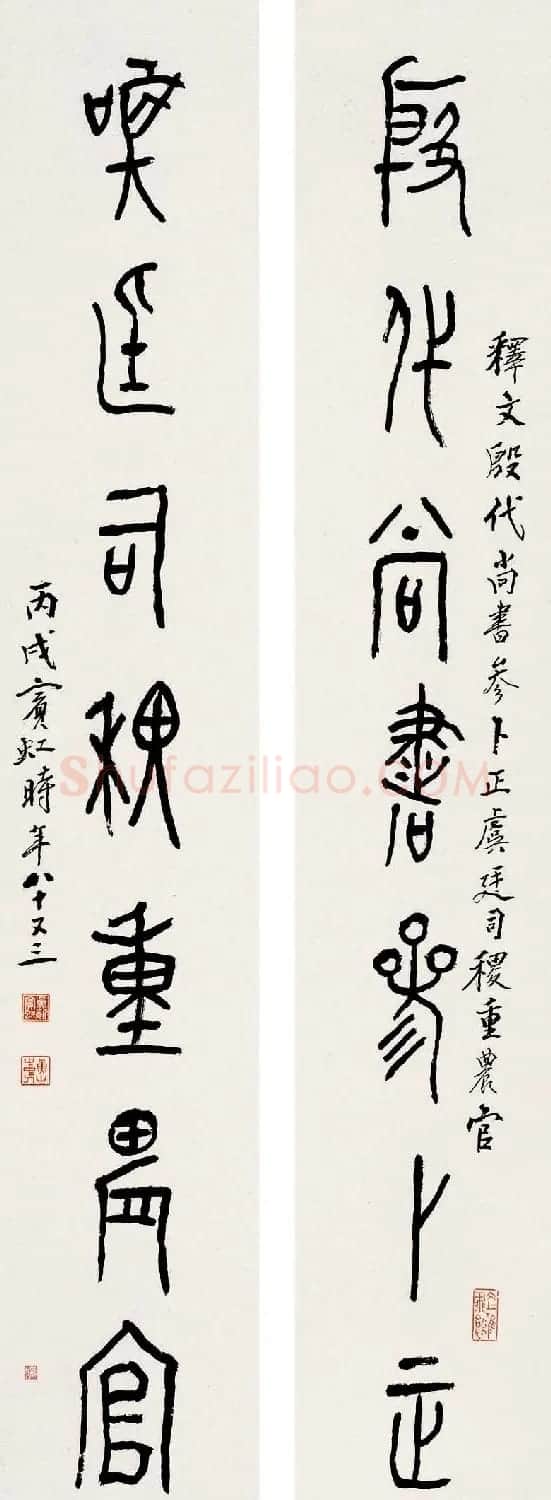 殷代尚書參卜正
釋文殷代尚書參卜正虞廷司稷重農官
虞廷司稷重農官
丙戌賓虹時年八十又三
Shufaziliao.COM